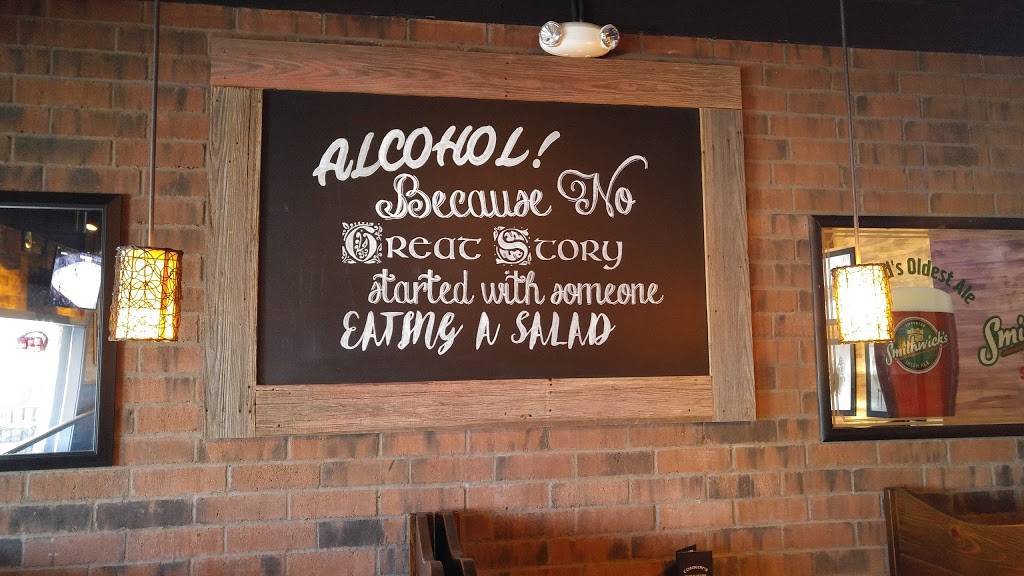 ALCOHOL!
Because No
Great Story
started with someone
EATING A SALAD
d's Oldest Ale
Smithwick's
Smi